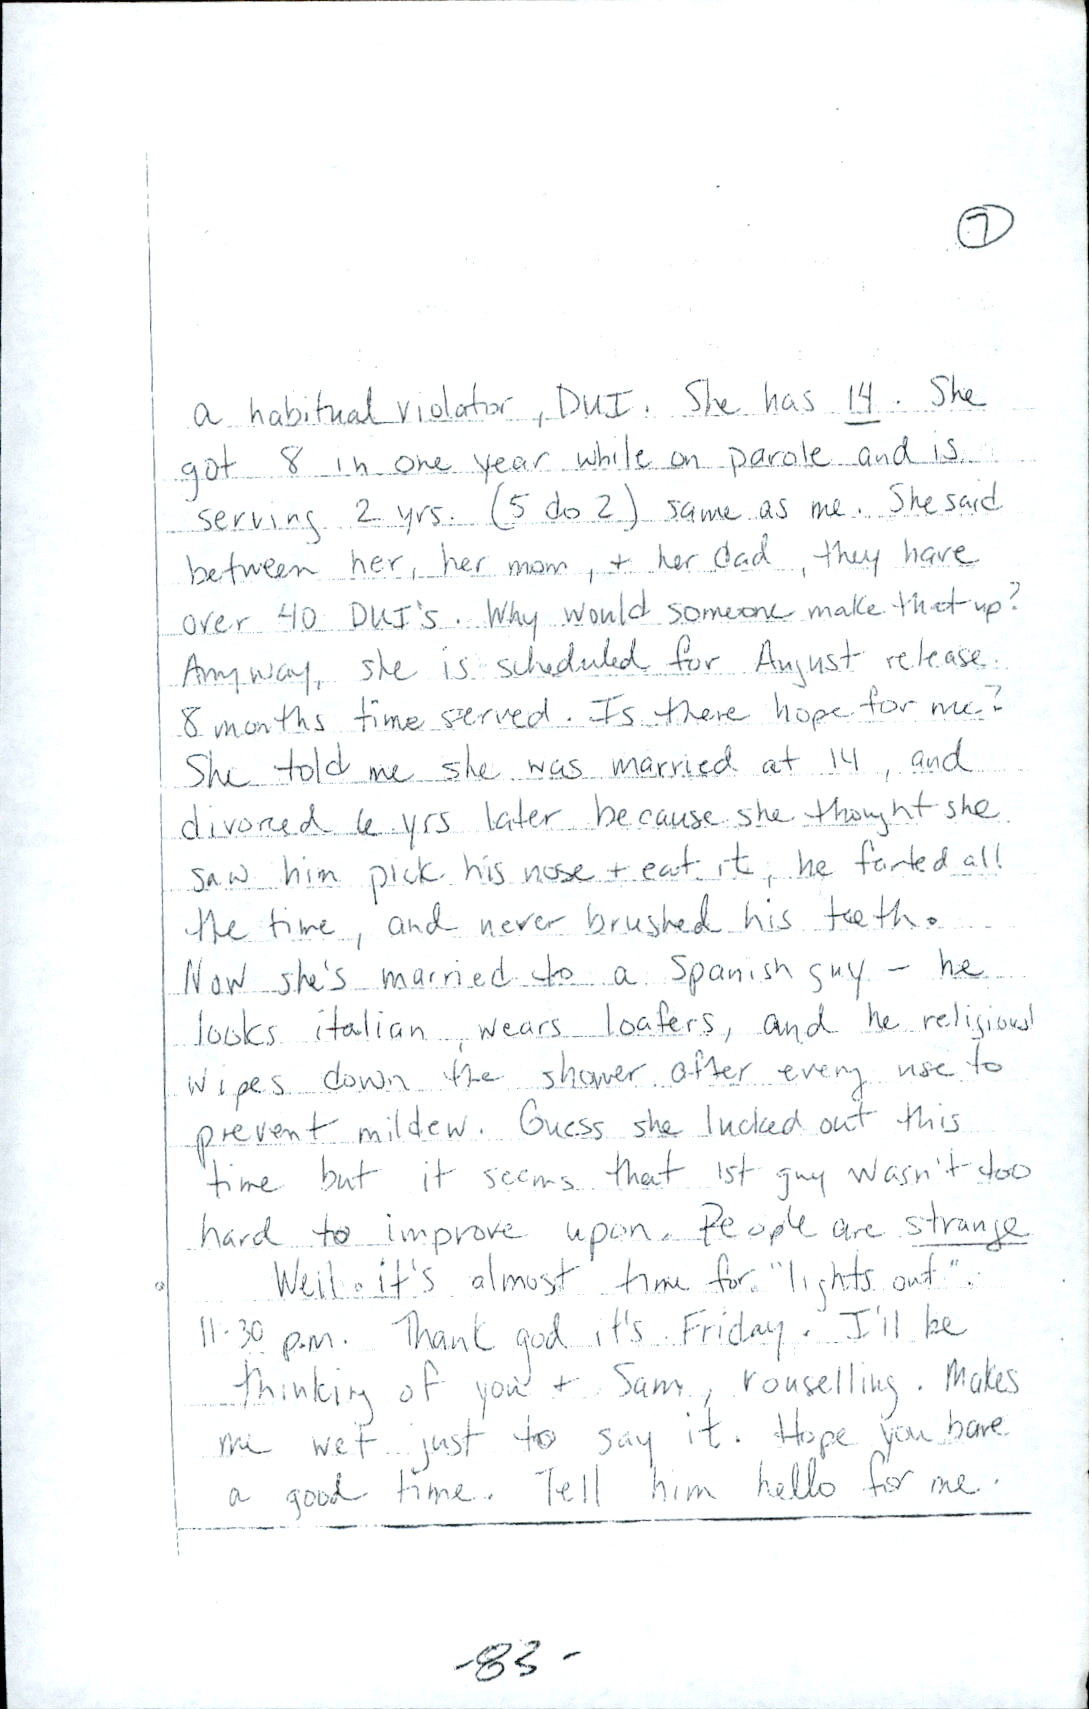 7
a habitual violator, DUI. She has 14. She
got 8 in one year while on parole and is
serving 2 yrs. (5 do 2) same as me. She said
between her, her mom, + her dad, they have
over 40 DUI's. Why would someone make that up?
Anyway, she is scheduled for August release.
8 months time served. Is there hope for me?
She told me she was married at 14, and
divorced 6 yrs later because she thought she
saw him pick his nose + eat it, he farted all
the time, and never brushed his teeth.
Now she's married to a Spanish guy - he
looks italian, wears loafers, and he religious
wipes down the shower after every use to
prevent mildew. Guess she lucked out this
time but it seems that 1st guy wasn't too
hard to improve upon. People are strange
Well. it's almost time for "lights out".
11:30 p.m. Thank god it's Friday. I'll be
thinking of you + Sam, rouselling. Makes
me wet just to say it. Hope you have
a good time. Tell him hello for me.
-83-